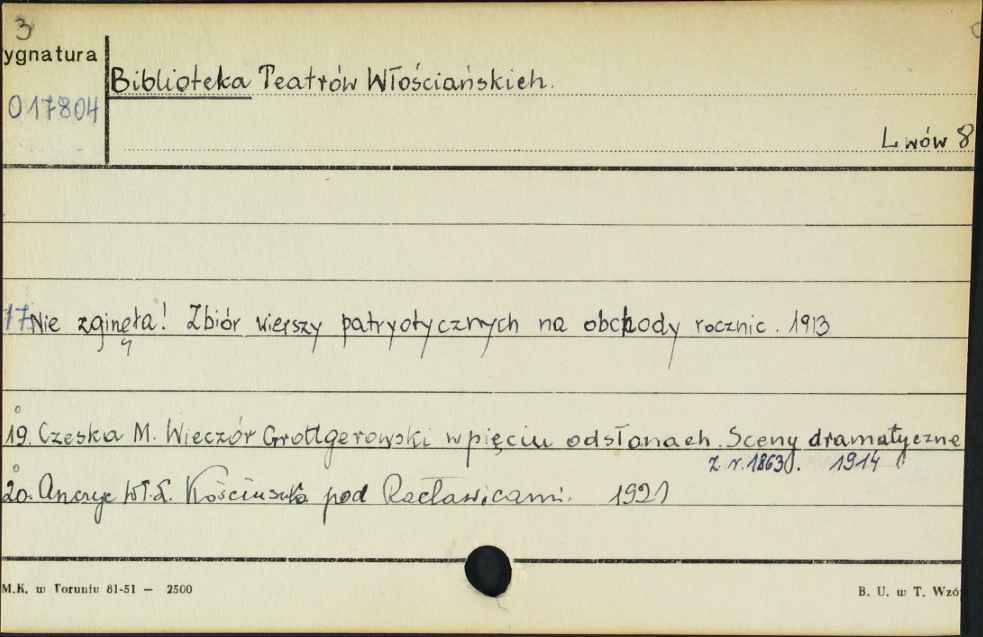 3
ygnatura
017804
Biblioteka Teatrów Włościańskich.
Lwów 8
17. Nie zginęła! Zbiór wierszy patryotycznych na obchody rocznic. 1913
19. Czeska M. Wieczór Grottgerowski w pięciu odsłonach. Sceny dramatyczne
z r. 1863. 1914
20. Anczyc Wł. L. Kościuszko pod Racławicami. 1921
M.K. w Toruniu 81-51 — 2500
B. U. w T. Wzó